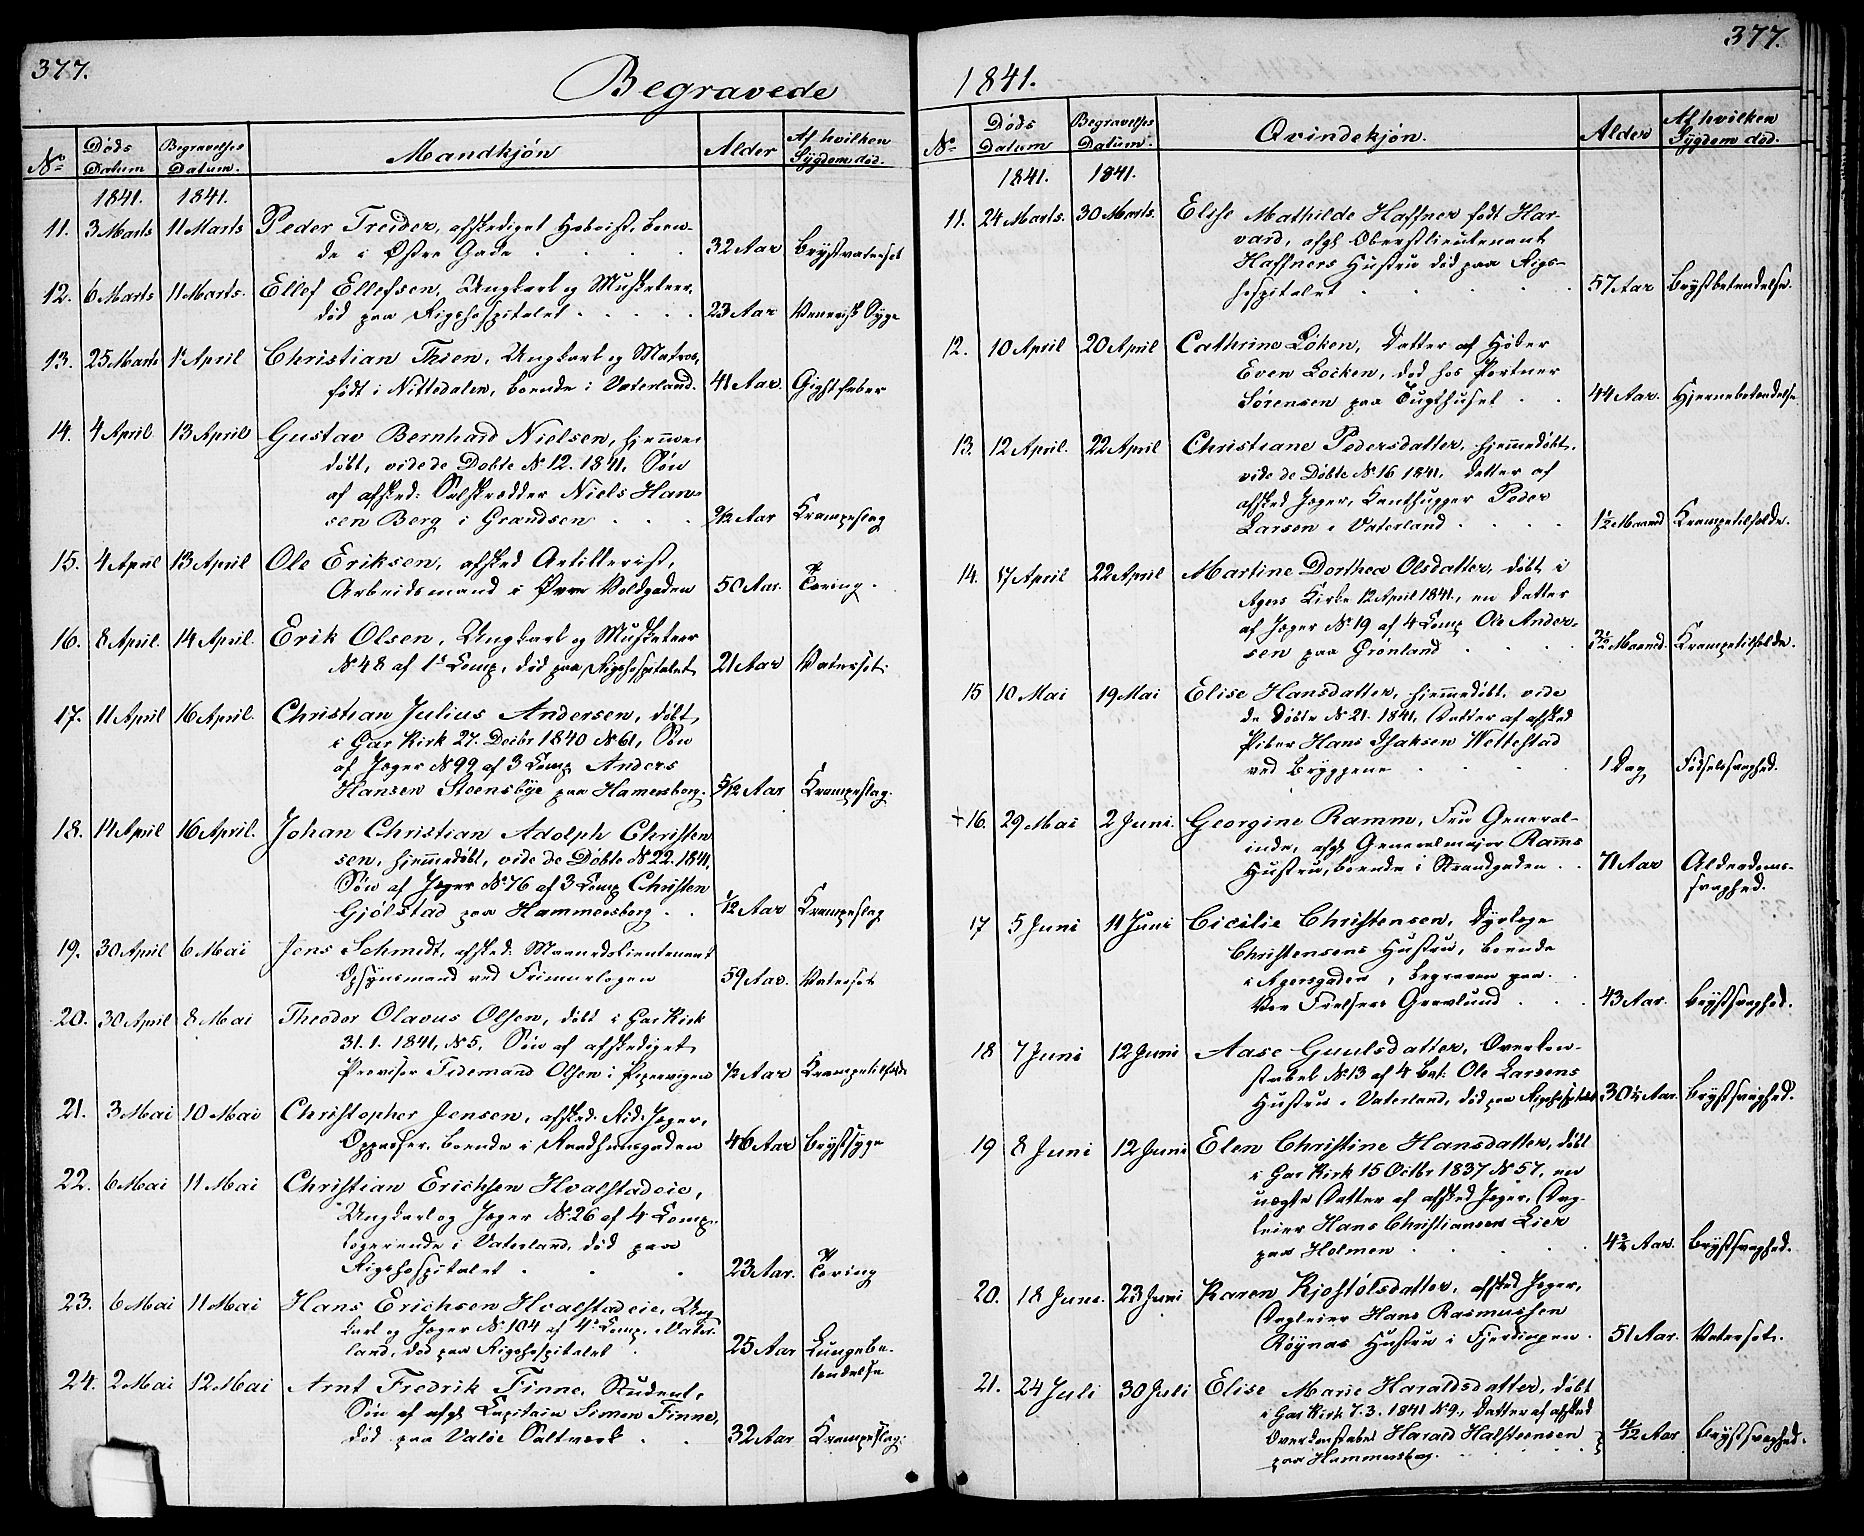 377.
Begravede
No Døds Datum Begravelses Datum. Mandkjøn Alder Af hvilken Sygdom død.
1841. 1841.
11. 3 Marts 11 Marts Peder Treider, afskediget Hoboist, boen-
de i Østre Gade 32 Aar Brystvatersot
12. 6 Marts 11 Marts. Ellef Ellefsen, Ungkarl og Musketeer,
død paa Rigshospitalet 23 Aar Venerisk Syge
13. 25 Marts 1 April Christian Thsen, Ungkarl og Matros,
født i Nittedalen, boende i Vaterland. 41 Aar. Gigtfeber
14. 4 April 13 April Gustav Bernhard Nielsen, hjemme-
døbt, vide de Døbte No 12. 1841, Søn
af afsked: Skrædder Niels Han-
sen Berg i Grændsen 9/12 Aar Krampeslag
15. 4 April 13 April Ole Eriksen, afsked Artillerist,
Arbeidsmand i Øvre Voldgaden 50 Aar. Tæring.
16. 8 April. 14 April. Erik Olsen, Ungkarl og Musketeer
No 48 af 1ste Comp, død paa Rigshospitalet 21 Aar Vatersot.
17. 11 April 16 April. Christian Julius Andersen, døbt
i Gar Kirk 27. Decbr 1840 No 61, Søn
af Jæger No 99 af 3 Comp Anders
Hansen Steensbye paa Hamersborg. 5/12 Aar Krampeslag.
18. 14 April 16 April. Johan Christian Adolph Christen
sen, hjemmedøbt, vide de Døbte No 22. 1841,
Søn af Jæger No 76 af 3 Comp Christen
Gjølstad paa Hammersborg 1/12 Aar Krampeslag
19. 30 April 6 Mai Jens Schmidt, afsked: Maanedslieutenant
Opsynsmand ved Frimurlogen 59 Aar. Vatersot
20. 30 April 8 Mai Theodor Olavus Olsen, døbt i Gar Kirk
31. 1. 1841, No 5, Søn af afskediget
Provisor Tidemand Olsen i Pipervigen Aar Krampetilfælde
21. 3 Mai 10 Mai Christopher Jensen, afsked: Rid: Jæger,
Oppasser, boende i Raadhuusgaden 46 Aar Brystsyge
22. 6 Mai 11 Mai Christian Erichsen Hvalstadeie,
Ungkarl og Jæger No 26 af 4 Comp.
logerende i Vaterland, død paa
Rigshospitalet 23 Aar. Tæring
23. 6 Mai 11 Mai Hans Erichsen Hvalstadeie, Ung
karl og Jæger No 104 af 4de Comp. i Vater-
land, død paa Rigshospitalet 25 Aar Lungebe-
tændelse
24. 2 Mai 12 Mai Arnt Fredrik Finne, Student,
Søn af afgl Capitain Simon Finne,
død paa Valøe Saltværk 32 Aar Krampeslag.
377.
1841.
No Døds Datum Begravelses Datum. Qvindekjøn. Alder Af hvilken Sygdom død.
1841. 1841.
11. 24 Marts. 30 Marts. Elise Mathilde Haffner født Har-
vard, afgl Oberstlieutenant
Haffners Hustru død paa Rigs-
hospitalet 57 Aar Brystbetændelse.
12. 10 April 20 April Cathrine Løken, Datter af Høker
Even Løcken, død hos Portner
Sørensen paa Tugthuset 44 Aar. Hjernebetændelse
13. 12 April. 22 April Christiane Pedersdatter, hjemmedøbt,
vide de Døbte No 16 1841, Datter af
afsked Jæger, Kanthugger Peder
Larsen i Vaterland 1 1/2 Maaned Krampetilfælde.
14. 17 April 22 April Martine Dorthea Olsdatter, døbt i
Agers Kirke 12 April 1841, en Datter
af Jæger No 19 af 4 Comp Ole Ander-
sen paa Grønland 3 1/2 Maaned. Krampetilfælde.
15 10 Mai 19 Mai Elise Hansdatter, hjemmedøbt vide
de Døbte No 21. 1841, Datter af afsked
Piber Hans Isaksen Wettestad
ved Bryggene 1 Dag Fødselssvaghed.
+16. 29 Mai 2 Juni. Georgine Ramm, Fru General-
inde, afgl Generalmajor Ramms
Hustru, boende i Strandgaden 71 Aar Alderdoms-
svaghed.
17 5 Juni 11 Juni Cicilie Christensen, Dyrlæge
Christensens Hustru, boende
i Agersgaden, begraven paa
Vor Frelsers Gravlund 43 Aar. Brystsvaghed.
18 7 Juni 12 Juni Aase Guulsdatter, Overkon-
stabel No 13 af 4 Bat: Ole Larsens
Hustru i Vaterland, død paa Rigshospitalet 30 1/2 Aar. Brystsvaghed.
19 8 Juni 12 Juni Elen Christine Hansdatter, døbt
i Gar Kirk 15 Octbr 1837 No 57, en
uægte Datter af afsked Jæger, Dag-
leier Hans Christiansen Lier
paa Holmen 4 Aar. Brystsvaghed.
20. 18 Juni. 23 Juni Karen Kjostølsdatter, afsked Jæger,
Dagleier Hans Rasmussen
Røynas Hustru i Fjerdingen 51 Aar. Vatersot.
21. 24 Juli 30 Juli Elise Marie Haraldsdatter, døbt
i Gar Kirk 7. 3. 1841 No 9, Datter af afsked
Overkonstabel Harald Halsteensen
paa Hammersborg. Aar Brystsvaghed.